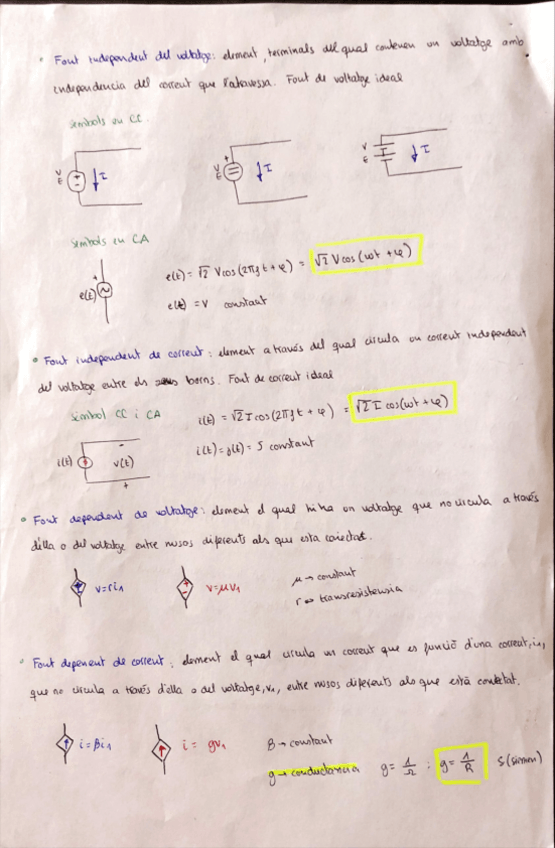 • Font independent del voltatge: element, terminals del qual contenen un voltatge amb
independencia del corrent que l'atravessa. Font de voltatge ideal
símbols en CC.
V E + - ↓I V E + ↓I V E ↓I
símbols en CA
e(t) + ~ e(t) = √2 V cos (2πft + φ) = √2 V cos (ωt + φ)
e(t) = V constant
• Font independent de corrent: element a través del qual circula un corrent independent
del voltatge entre els borns. Font de corrent ideal
símbol CC i CA i(t) = √2 I cos (2πft + φ) = √2 I cos (ωt + φ)
i(t) - v(t) + i(t) = g(t) = S constant
• Font dependent de voltatge: element el qual hi ha un voltatge que no circula a través
d'ella o del voltatge entre nusos diferents als que esta conectad.
v = ri₁ v = μv₁ μ → constant
r ↔ transresistensia
• Font depenent de corrent: element el qual circula un corrent que es funció d'una corrent, i₁,
que no circula a través d'ella o del voltatge, v₁, entre nusos diferents als que està conectat.
i = βi₁ i = gv₁ β → constant
g → conductancia g = 1/Ω ; g = 1/R S (simen)